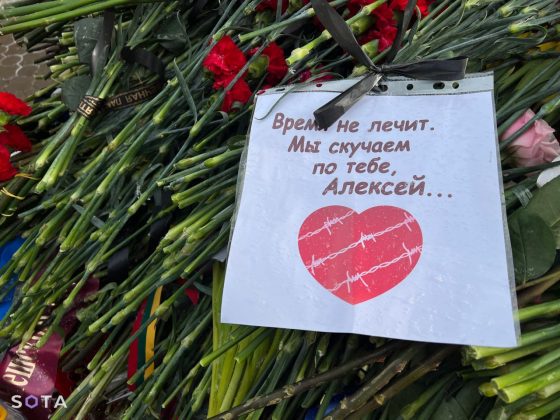 Время не лечит.
Мы скучаем
по тебе,
Алексей...
SOTA